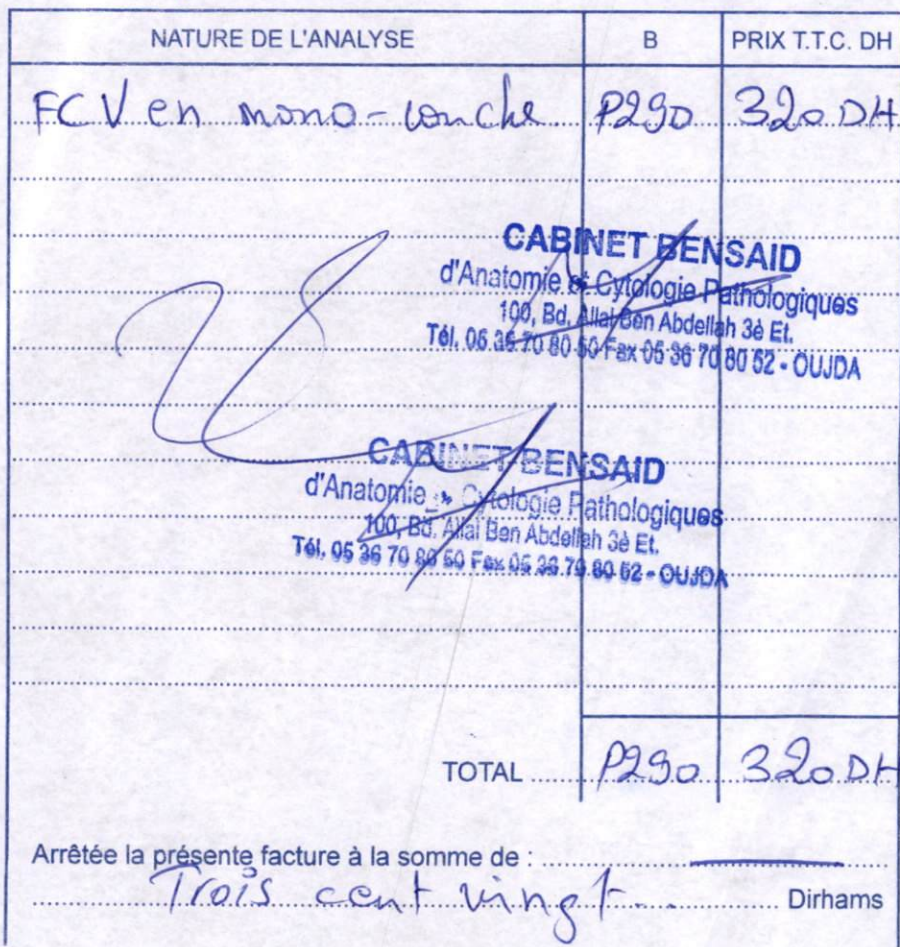 NATURE DE L'ANALYSE B PRIX T.T.C. DH
FCV en mono-couche P290 320 DH
CABINET BENSAID
d'Anatomie et Cytologie Pathologiques
100, Bd. Allal Ben Abdellah 3è Et.
Tél. 05 36 70 80 50 Fax 05 36 70 80 52 - OUJDA
CABINET BENSAID
d'Anatomie et Cytologie Pathologiques
100, Bd. Allal Ben Abdellah 3è Et.
Tél. 05 36 70 80 50 Fax 05 36 70 80 52 - OUJDA
TOTAL P290 320 DH
Arrêtée la présente facture à la somme de :
Trois cent vingt Dirhams